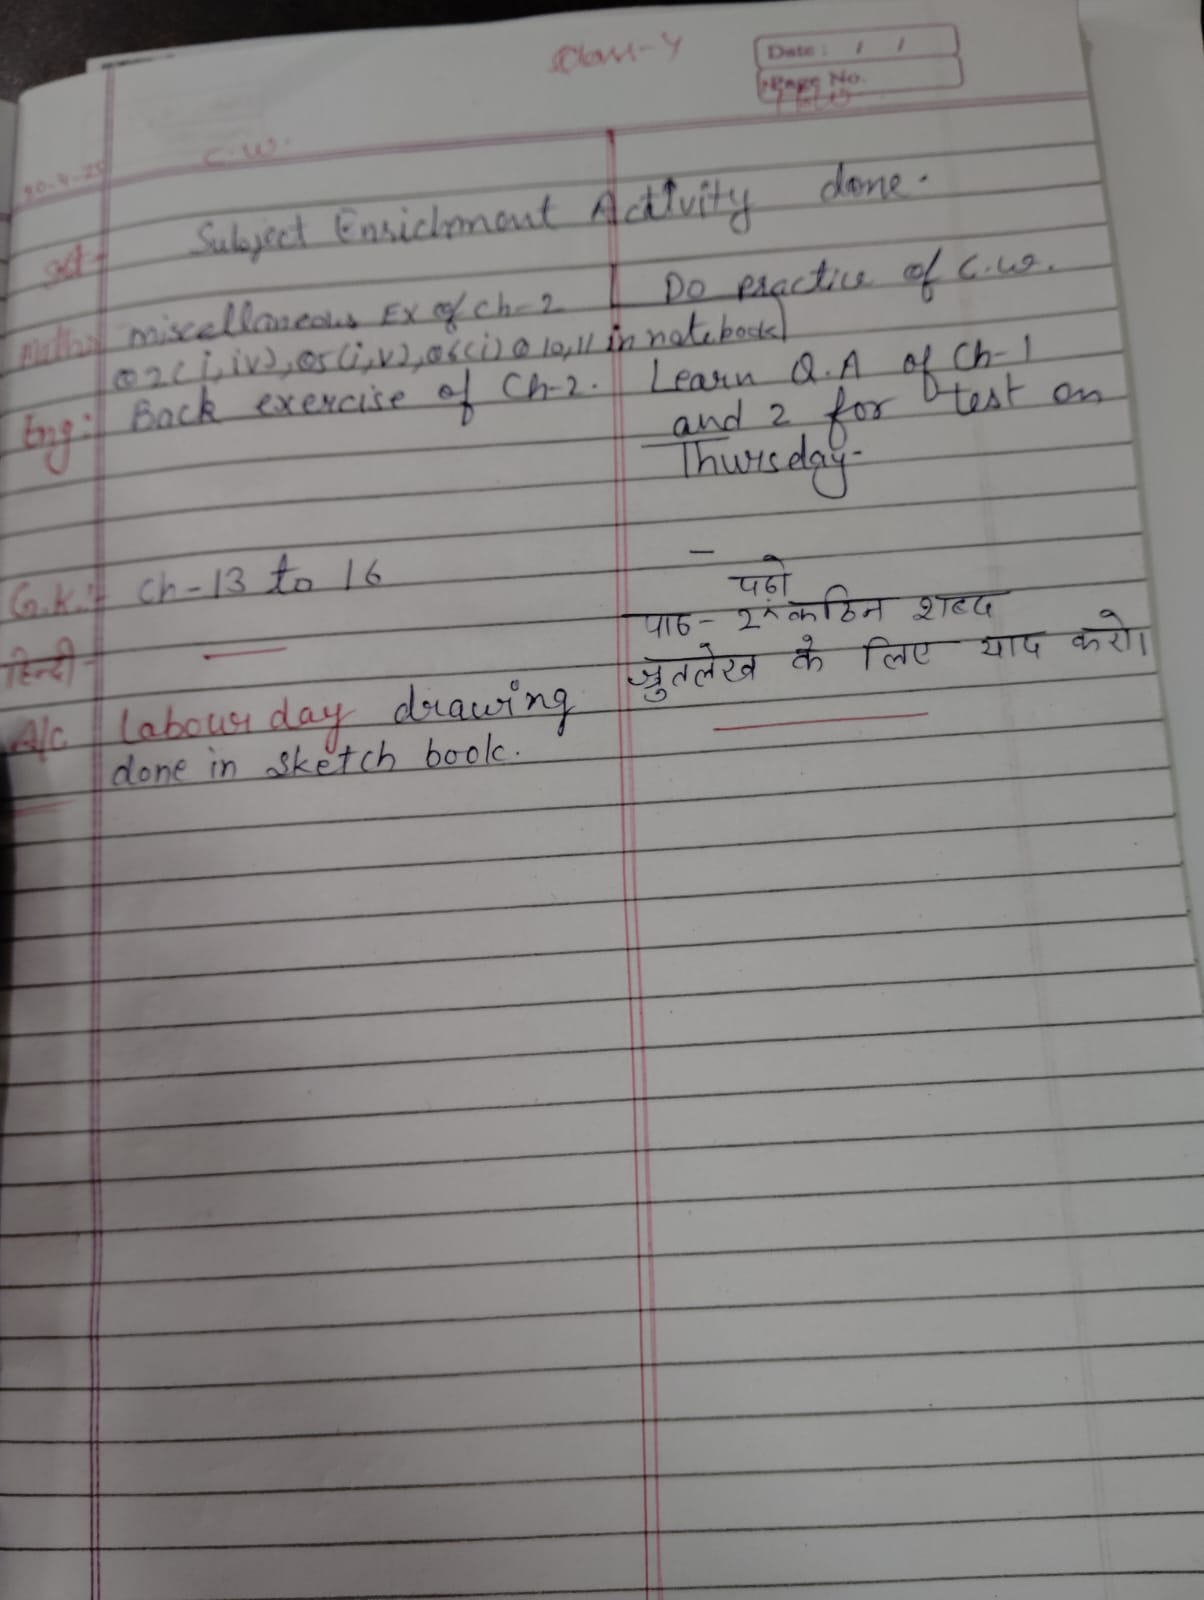 Class-4
Date : / /
Page No.
30-4-25
C.W.
Subject Enrichment Activity done.
Maths: miscellaneous Ex of ch-2
Do practice of C.W.
Q2(i,iv), Q5(i,v), Q6(i) Q 10,11 in notebook
Eng: Back exercise of Ch-2.
Learn Q.A of Ch-1
and 2 for test on
Thursday-
G.K.:- Ch-13 to 16
हिन्दी-
पढ़ो
पाठ-2 ^ कठिन शब्द
श्रुतलेख के लिए याद करो।
A/C labour day drawing
done in sketch book.